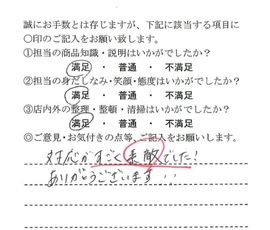 誠にお手数とは存じますが、下記に該当する項目に
〇印のご記入をお願い致します。
①担当の商品知識・説明はいかがでしたか？
満足 ・ 普通 ・ 不満足
②担当の身だしなみ・笑顔・態度はいかがでしたか？
満足 ・ 普通 ・ 不満足
③店内外の整理・整頓・清掃はいかがでしたか？
満足 ・ 普通 ・ 不満足
◎ご意見・お気付きの点等、ご記入をお願いします。
対応がすごく素敵でした！
ありがとうございます